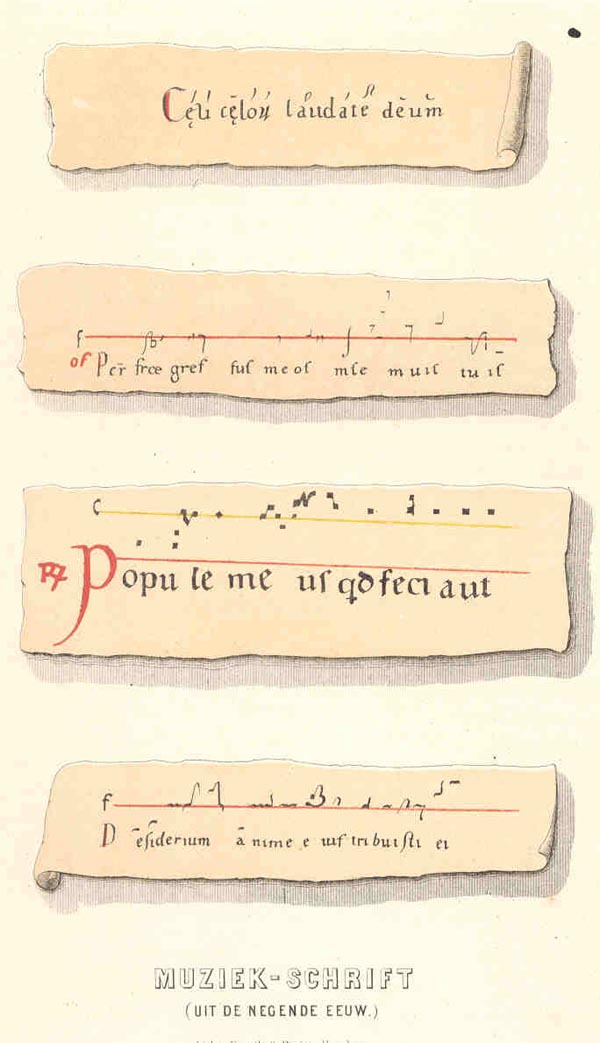 Cęli cęloꝝ laudate deum
f
of Per frœ gref fuſ meoſ mſe muıſ tuıſ
C
Popu le me uſ qđ feci aut
f
Deſiderium anime e uiſ tribuiſti ei
MUZIEK-SCHRIFT
(UIT DE NEGENDE EEUW.)